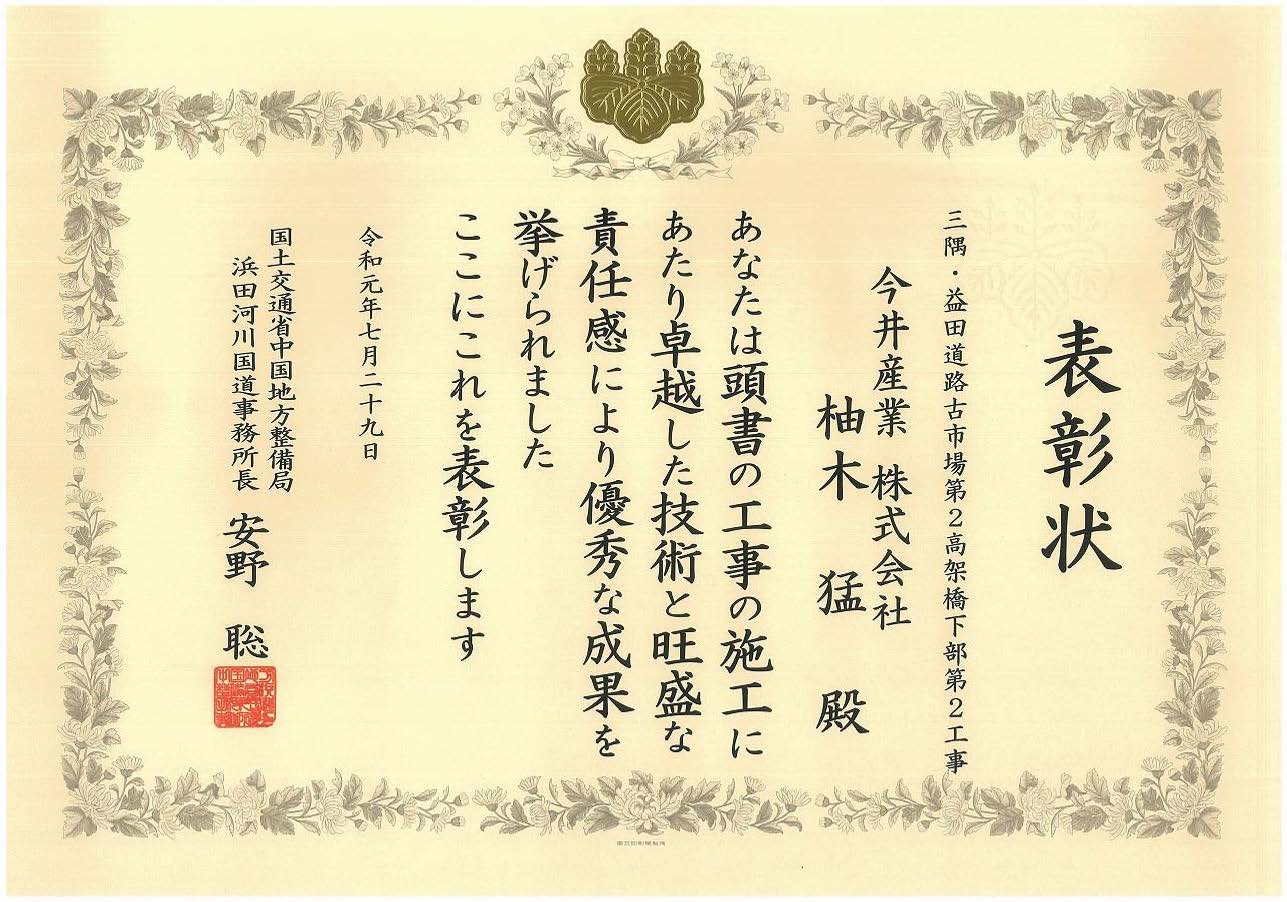 表彰状
三隅・益田道路古市場第2高架橋下部第2工事
今井産業 株式会社
柚木 猛 殿
あなたは頭書の工事の施工に
あたり卓越した技術と旺盛な
責任感により優秀な成果を
挙げられました
ここにこれを表彰します
令和元年七月二十九日
国土交通省中国地方整備局
浜田河川国道事務所長 安野 聡